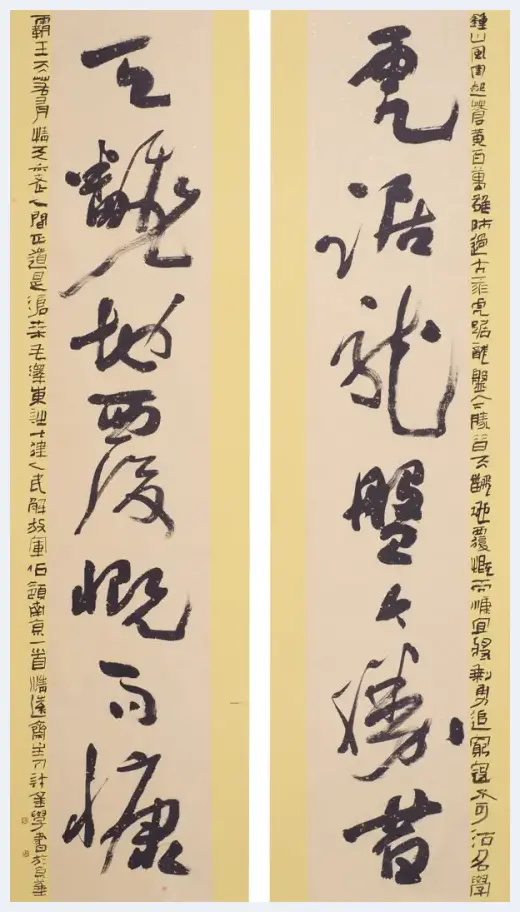 鍾山風雨起蒼黃百萬雄師過大江虎踞龍盤今勝昔天翻地覆慨而慷宜將剩勇追窮寇不可沽名學
虎踞龍盤今勝昔
天翻地覆慨而慷
霸王天若有情天亦老人間正道是滄桑毛澤東詩七律人民解放軍佔領南京一首清遠齋主學書於京華